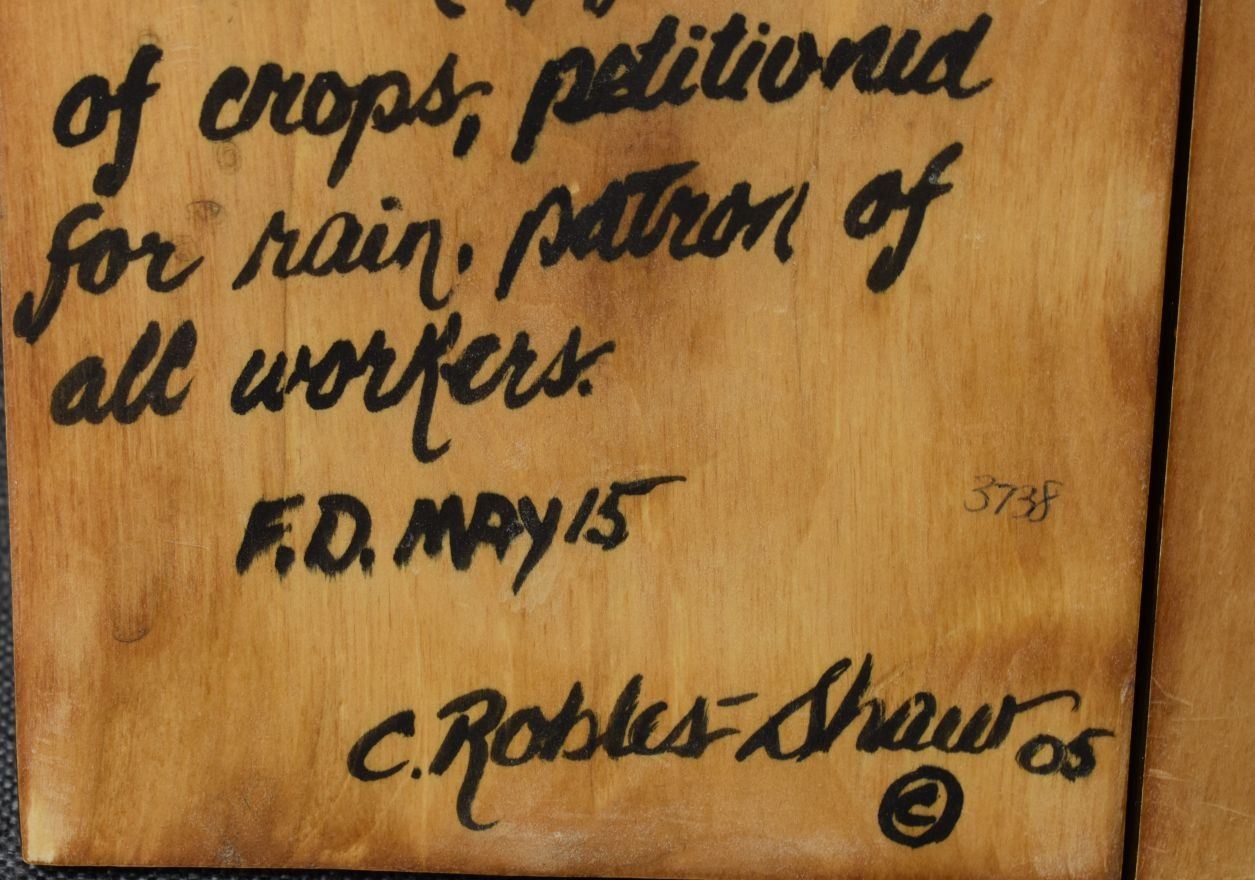 of crops, petitioned
for rain. patron of
all workers.
F.D. MAY 15
3738
C. Robles-Shaw 05
©